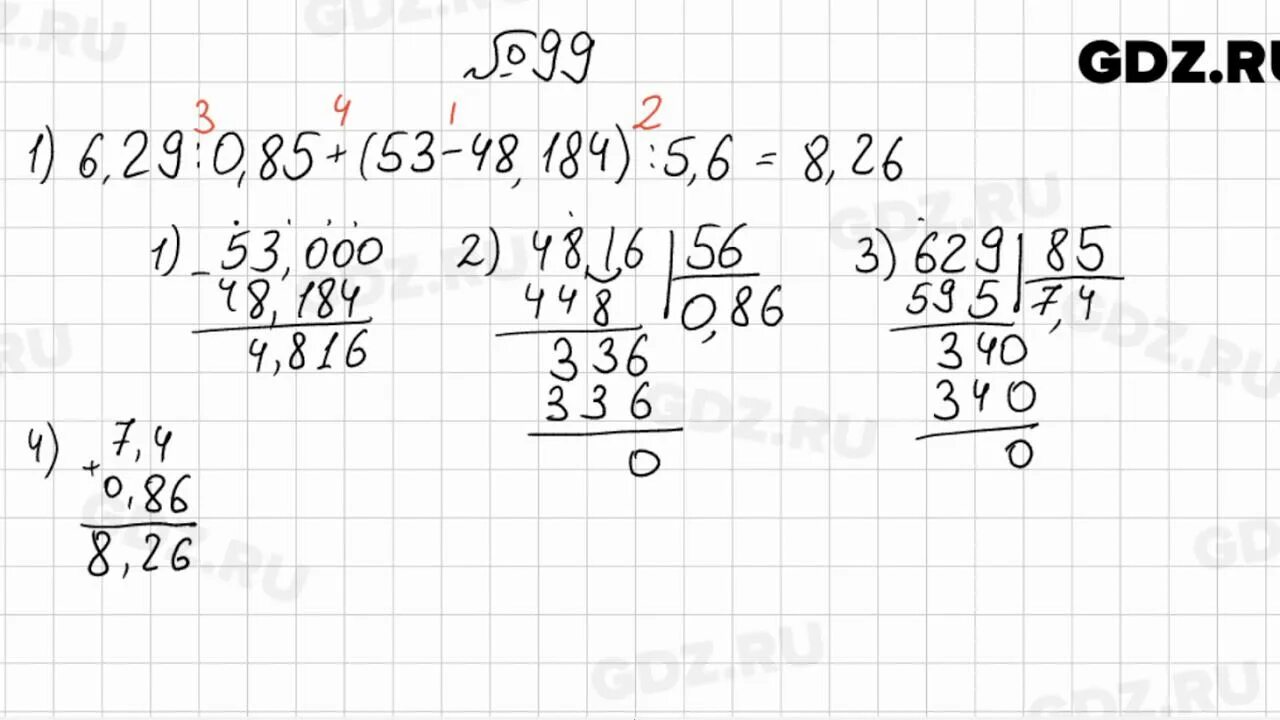 №99
GDZ.RU
3 4 1 2
1) 6,29:0,85+(53-48,184):5,6=8,26
1) 53,000
- 48,184
4,816
2) 48,16 | 56
448 | 0,86
336
336
0
3) 629 | 85
595 | 7,4
340
340
0
4) 7,4
+ 0,86
8,26